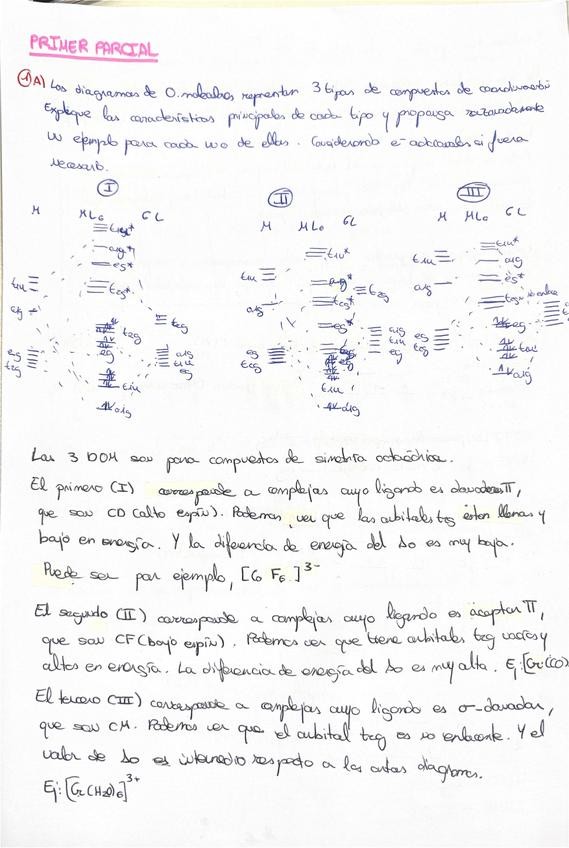 PRIMER PARCIAL
1 A) Los diagramas de O.moleculares representan 3 tipos de compuestos de coordinación
Explique las características principales de cada tipo y proponga razonadamente
un ejemplo para cada uno de ellos. Considerando e- adicionales si fuera
necesario.
I
M ML6 6L
t1u*
a1g*
eg*
t2g*
t1u
a1g
t2g
t2g
eg
eg
t2g
a1g
t1u
eg
t1u
a1g
II
M ML6 6L
t1u*
t1u
a1g*
t2g*
t2g
a1g
eg*
a1g
t1u
eg
eg
t2g
t1u
a1g
III
M ML6 6L
t1u*
t1u
a1g
eg*
a1g
t2g no enlace
eg
eg
t2g
t1u
a1g
Las 3 DOM son para compuestos de simetría octaédrica.
El primero (I) corresponde a complejos cuyo ligando es dadores π,
que son CD (alto espín). Podemos ver que las orbitales t2g están llenas y
bajo en energía. Y la diferencia de energía del Δo es muy baja.
Puede ser por ejemplo, [Co F6]3-
El segundo (II) corresponde a complejos cuyo ligando es aceptor π,
que son CF (bajo espín). Podemos ver que tiene orbitales t2g vacíos y
altos en energía. La diferencia de energía del Δo es muy alta. Ej: [Cr(CO)
El tercero (III) corresponde a complejos cuyo ligando es σ-dador,
que son CM. Podemos ver que el orbital t2g es no enlazante. Y el
valor de Δo es intermedio respecto a los otros diagramas.
Ej: [Cr(H2O)6]3+